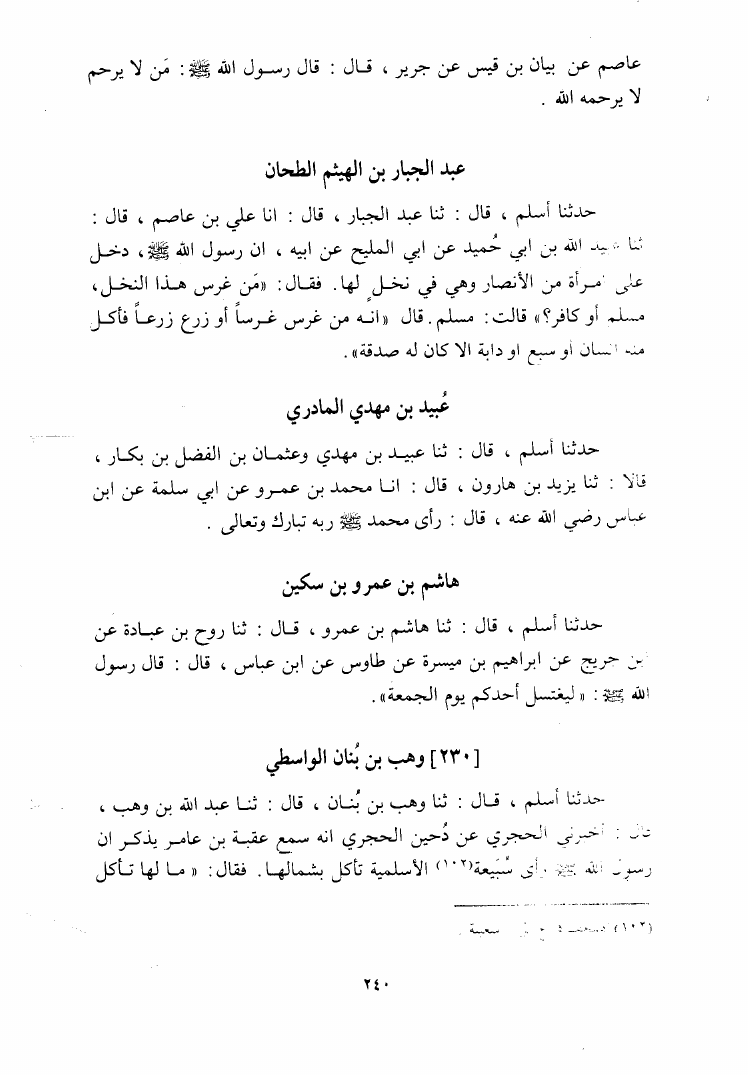 عاصم عن بيان بن قيس عن جرير ، قـال : قال رسـول الله ﷺ : مَن لا يرحم
لا يرحمه الله .
عبد الجبار بن الهيثم الطحان
حدثنا أسلم ، قال : ثنا عبد الجبار ، قال : انا علي بن عاصم ، قال :
ثنا عبيد الله بن ابي حُميد عن ابي المليح عن ابيه ، ان رسول الله ﷺ ، دخـل
على امـرأة من الأنصار وهي في نخـل لها. فقـال : «مَن غرس هـذا النخـل،
مسلم أو كافر؟» قالت : مسلم . قال «انـه من غرس غـرساً أو زرع زرعـاً فأكـل
منه انسان أو سبع او دابة الا كان له صدقة» .
عُبيد بن مهدي المادري
حدثنا أسلم ، قال : ثنا عبيـد بن مهدي وعثمـان بن الفضل بن بكـار ،
قالا : ثنا يزيد بن هارون ، قال : انـا محمد بن عمـرو عن ابي سلمة عن ابن
عباس رضي الله عنه ، قال : رأى محمد ﷺ ربه تبارك وتعالى .
هاشم بن عمرو بن سكين
حدثنا أسلم ، قال : ثنا هاشم بن عمرو ، قـال : ثنا روح بن عبـادة عن
ابن جريج عن ابراهيم بن ميسرة عن طاوس عن ابن عباس ، قال : قال رسول
الله ﷺ : «ليغتسل أحدكم يوم الجمعة» .
[٢٣٠] وهب بن بُنان الواسطي
حدثنا أسلم ، قـال : ثنا وهب بن بُنـان ، قال : ثنـا عبد الله بن وهب ،
قال : أخبرني الحجري عن دُحين الحجري انه سمع عقبـة بن عامـر يذكـر ان
رسول الله ﷺ رأى سُبَيعة(١٠٢) الأسلمية تأكل بشمالهـا. فقال : «مـا لها تـأكل
(١٠٢) سعبة .
٢٤٠